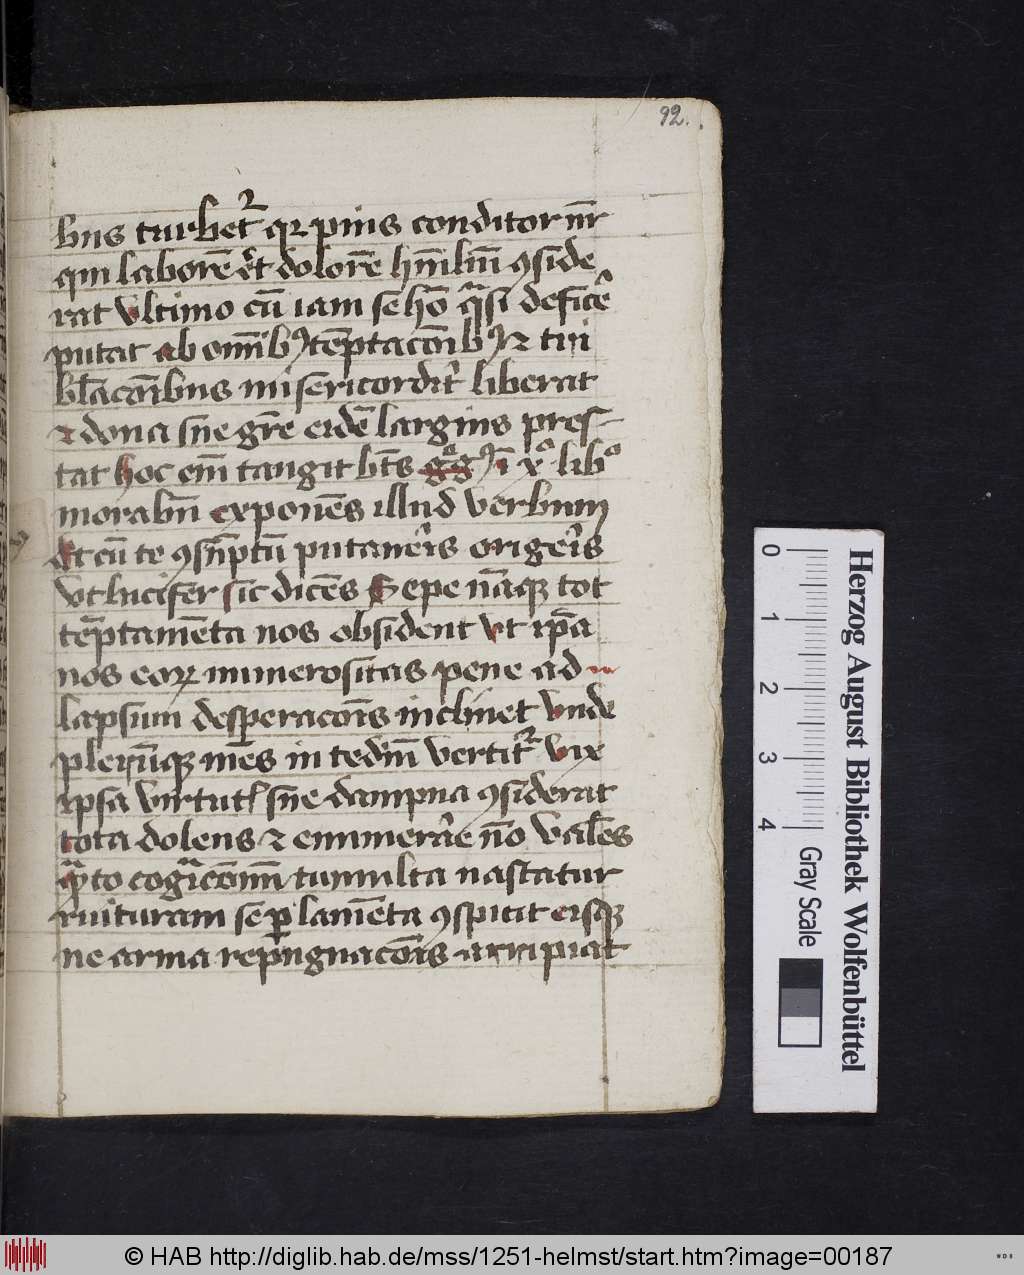 92.
bus turbet᷑ qꝛ pius conditor nr̄
qui laborē et dolorē hm̄lium ꝯside
rat vltimo cū iam se hō qͣsi deficẽ
putat ab omībꝰ tēptacōibꝰ ⁊ tri
bl̄acōibus misericordit᷑ liberat
⁊ dona sue gr̄e eidē largius pres-
tat hoc em̄ tangit bt̄s gͣgꝰ ī xº libº
moraliū exponēs illud verbum
Et cū te ꝯsūptū putaueris orieris
vt lucifer sic dicēs Sepe nāqꝫ tot
tēptamēta nos obsident vt ip̄a
nos eoꝝ numerositas pene ad
lapsum desperacōis inclinet vnde
plerūqꝫ mēs in tediū vertit᷑ vix
ipsa virtutꝭ sue dampna ꝯsiderat
tota dolens ⁊ enumerare nō vales
qͣto cogitacōnū tumulta nascatur
ruituram se ꝑ lamēta ꝯspicit eisqꝫ
ne arma repugnacōis arripiat
Herzog August Bibliothek Wolfenbüttel
0 1 2 3 4
Gray Scale
© HAB http://diglib.hab.de/mss/1251-helmst/start.htm?image=00187